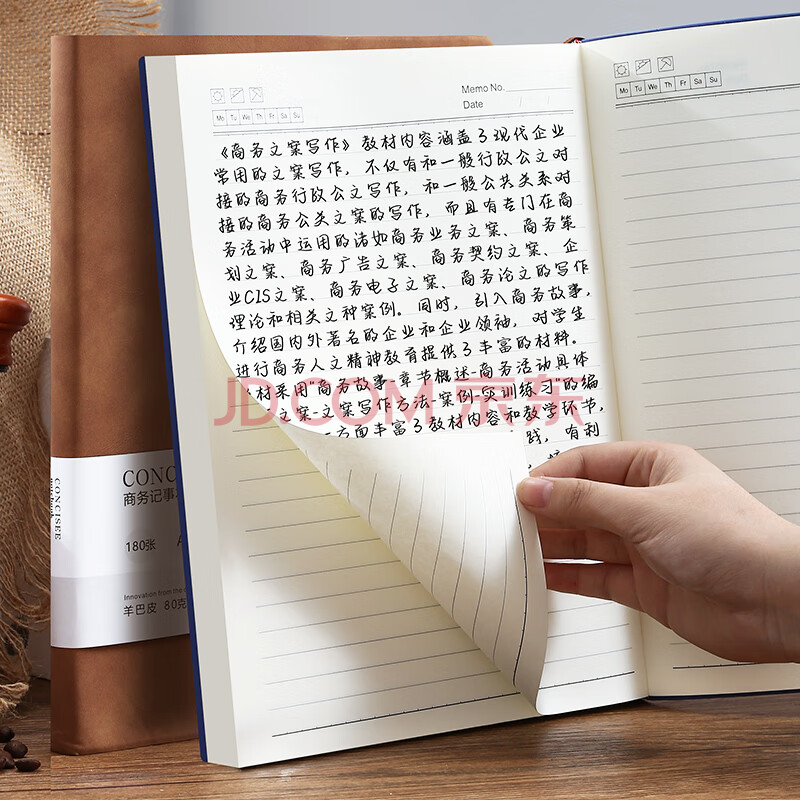 Memo No.
Date / /
Mo Tu We Th Fr Sa Su
《商务文案写作》教材内容涵盖了现代企业
常用的文案写作，不仅有和一般行政公文对
接的商务行政公文写作，和一般公共关系对
接的商务公关文案的写作，而且有专门在商
务活动中运用的诸如商务业务文案、商务策
划文案、商务广告文案、商务契约文案、企
业CIS文案、商务电子文案、商务论文的写作
理论和相关文种案例。同时，引入商务故事，
介绍国内外著名的企业和企业领袖，对学生
进行商务人文精神教育提供了丰富的材料。
材采用"商务故事-章节概述-商务活动具体
文案-文案写作方法-案例-实训练习"的编
方面丰富了教材内容和教学环节，
践，有利
Mo Tu We Th Fr Sa Su
JD.COM 京东
CONCISEE
CONC
商务记事
180张
Innovation from the
羊巴皮 80克